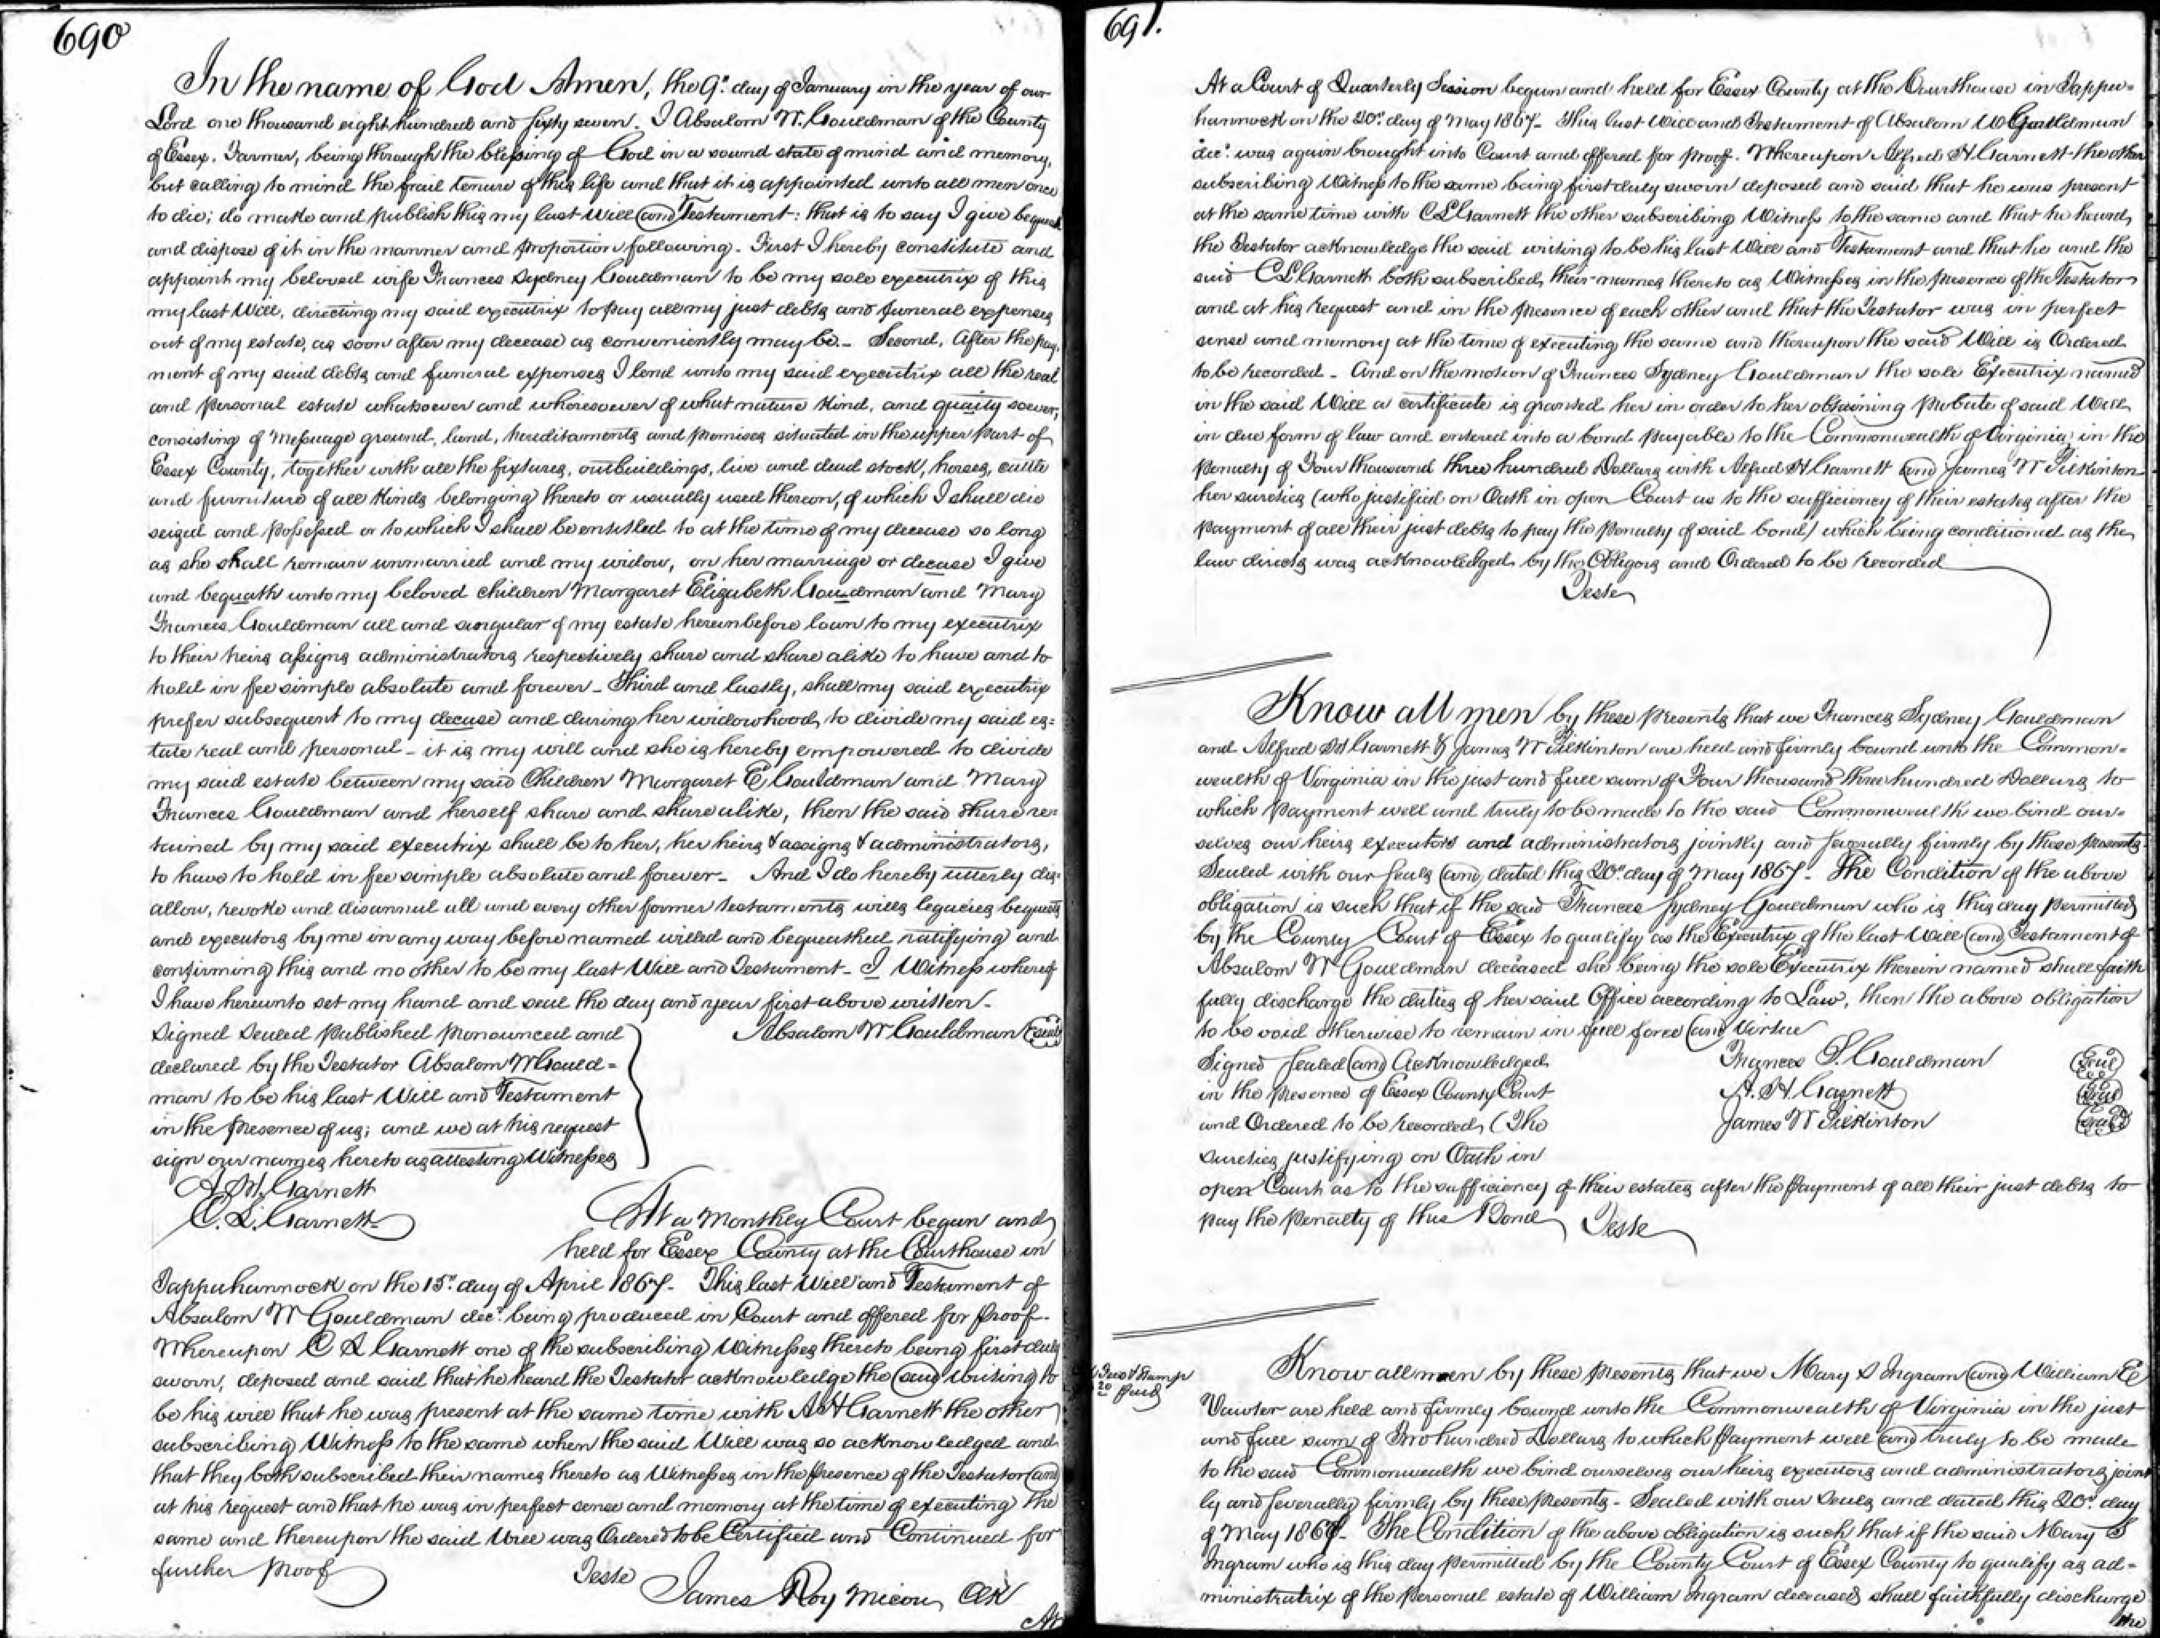 690
In the name of God Amen, the 9th day of January in the year of our
Lord one thousand eight hundred and sixty seven. I Absalom W. Gouldman of the County
of Essex, Farmer, being through the blessing of God in a sound state of mind and memory,
but calling to mind the frail tenure of this life and that it is appointed unto all men once
to die; do make and publish this my last Will and Testament: that is to say I give bequeath
and dispose of it in the manner and proportion following. First I hereby constitute and
appoint my beloved wife Frances Sydney Gouldman to be my sole executrix of this
my last Will, directing my said executrix to pay all my just debts and funeral expenses
out of my estate, as soon after my decease as conveniently may be. Second, After the pay-
ment of my said debts and funeral expenses I lend unto my said executrix all the real
and personal estate whatsoever and wheresoever of what nature kind, and quaity soever,
consisting of messuage ground, land, hereditaments and premises situated in the upper part of
Essex County, together with all the fixtures, outbuildings, live and dead stock, horses, cattle
and furniture of all kinds belonging thereto or usually used thereon, of which I shall die
seized and possessed or to which I shall be entitled to at the time of my decease so long
as she shall remain unmarried and my widow, on her marriage or decase I give
and bequath unto my beloved children Margaret Elizabeth Goudman and Mary
Frances Gouldman all and singular of my estate hereinbefore loan to my executrix
to their heirs assigns administrators respectively share and share alike to have and to
hold in fee simple absolute and forever – Third and lastly, shall my said executrix
prefer subsequent to my decase and during her widowhood, to divide my said es=
tate real and personal – it is my will and she is hereby empowered to divide
my said estate between my said Children Margaret E Gouldman and Mary
Frances Gouldman and herself share and share alike, then the said share re=
tained by my said executrix shall be to her, her heirs & assigns & administrators,
to have to hold in fee simple absolute and forever – And I do hereby utterly dis=
allow, revoke and disannul all and every other former testaments wills legacies bequests
and executors by me in any way before named willed and bequeathed ratifying and
confirming this and no other to be my last Will and Testament – I Witness whereof
I have hereunto set my hand and seal the day and year first above written –
Signed Sealed published pronounced and Absalom W Gouldman Seal
declared by the Testator Absalom W Gould=
man to be his last Will and Testament
in the presence of us; and we at his request
sign our names hereto as attesting Witnesses
A. H. Garnett
C. L. Garnett
At a Monthly Court begun and
held for Essex County at the Courthouse in
Tappahannock on the 15th day of April 1867. This last Will and Testament of
Absalom W Gouldman decd being produced in Court and offered for proof.
Whereupon C L Garnett one of the subscribing Witnesses thereto being first duly
sworn, deposed and said that he heard the Testator acknowledge the said writing to
be his will that he was present at the same time with A H Garnett the other
subscribing Witness to the same when the said Will was so acknowledged and
that they both subscribed their names thereto as Witnesses in the presence of the Testator and
at his request and that he was in perfect sense and memory at the time of executing the
same and thereupon the said Will was Ordered to be Certified and Continued for
further proof
Teste
James Roy Micou, Clk
At
691.
At a Court of Quarterly Session begun and held for Essex County at the Courthouse in Tappa=
hannock on the 20th day of May 1867. This last Will and Testament of Absalom W Gouldman
decd was again brought into Court and offered for proof. Whereupon Alfred H. Garnett the other
subscribing Witness to the same being first duly sworn deposed and said that he was present
at the same time with C L Garnett the other subscribing Witness to the same and that he heard
the Testator acknowledge the said writing to be his last Will and Testament and that he and the
said C L Garnett both subscribed their names thereto as Witnesses in the presence of the Testator
and at his request and in the presence of each other and that the Testator was in perfect
sense and memory at the time of executing the same and thereupon the said Will is Ordered
to be recorded – And on the motion of Frances Sydney Gouldman the sole Executrix named
in the said Will a certificate is granted her in order to her obtaining probate of said Will
in due form of law and entered into a bond payable to the Commonwealth of Virginia in the
penalty of Four thousand three hundred Dollars with Alfred H Garnett and James W Pilkinton
her sureties (who justified on Oath in open Court as to the sufficiency of their estates after the
payment of all their just debts to pay the penalty of said bond) which being conditioned as the
law directs was acknowledged by the Obligors and Ordered to be recorded
Teste
Know all men by these presents that we Frances Sydney Gouldman
and Alfred H Garnett & James W Pilkinton are held and firmly bound unto the Common=
wealth of Virginia in the just and full sum of Four thousand three hundred Dollars to
which payment well and truly to be made to the said Commonwealth we bind our=
selves our heirs executors and administrators jointly and severally firmly by these presents.
Sealed with our seals and dated this 20th day of May 1867. The Condition of the above
obligation is such that if the said Frances Sydney Gouldman who is this day permitted
by the County Court of Essex to qualify as the Executrix of the last Will and Testament of
Absalom W Gouldman deceased she being the sole Executrix therein named shall faith
fully discharge the duties of her said Office according to Law, then the above obligation
to be void otherwise to remain in full force and virtue
Signed Sealed and Acknowledged Frances S. Gouldman Seal
in the presence of Essex County Court A. H. Garnett Seal
and Ordered to be recorded, (The James W Pilkinton Seal
sureties justifying on Oath in
open Court as to the sufficiency of their estates after the payment of all their just debts to
pay the penalty of this Bond Teste
Stamp
Paid
Know all men by these presents that we Mary S Ingram and William E
Vawter are held and firmly bound unto the Commonwealth of Virginia in the just
and full sum of Two hundred Dollars to which payment well and truly to be made
to the said Commonwealth we bind ourselves our heirs executors and administrators joint
ly and severally firmly by these presents – Sealed with our seals and dated this 20th day
of May 1867. The Condition of the above obligation is such that if the said Mary S
Ingram who is this day permitted by the County Court of Essex County to qualify as ad=
ministratrix of the personal estate of William Ingram deceased shall faithfully discharge
the